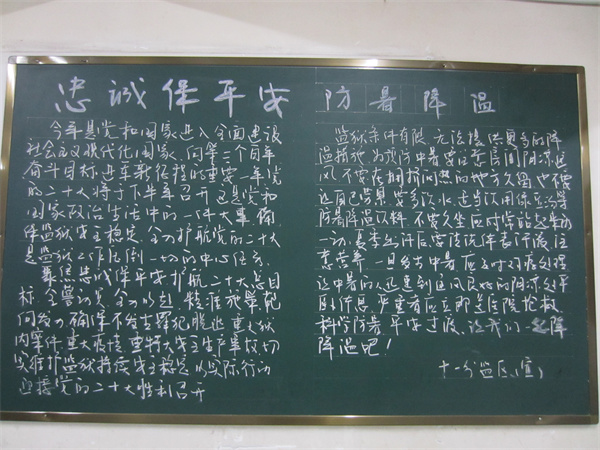 忠诚保平安
今年是党和国家进入全面建设
社会主义现代化国家、向第二个百年
奋斗目标进军新征程的重要一年，党
的二十大将于下半年召开，这是党和
国家政治生活中的一件大事，确
保监狱安全稳定，全力护航党的二十大
是监狱工作压倒一切的中心任务。
聚焦忠诚保平安护航二十大总目
标，全警动员，全力以赴，精准施策靶
向发力，确保不发生罪犯脱逃、重大狱
内案件、重大疫情、重特大安全生产事故，切
实维护监狱持续安全稳定，以实际行动
迎接党的二十大胜利召开
防暑降温
监狱条件有限，无法提供更多的降
温措施，为预防中暑要注意房间阴凉通
风，不要在拥挤闷热的地方久留，也不要
让自己劳累，要多次
防暑降温饮料，不要久坐应时常站起来活动
一切，夏季出汗后要清洗
意营养，一旦发生中暑，应及时对症处理
让中暑的人迅速到通风良好的阴凉处
休息，严重者应立即送医院抢救，
科学防暑，平安度夏，让我们一起防暑
降温吧！
十一分监区（宣）